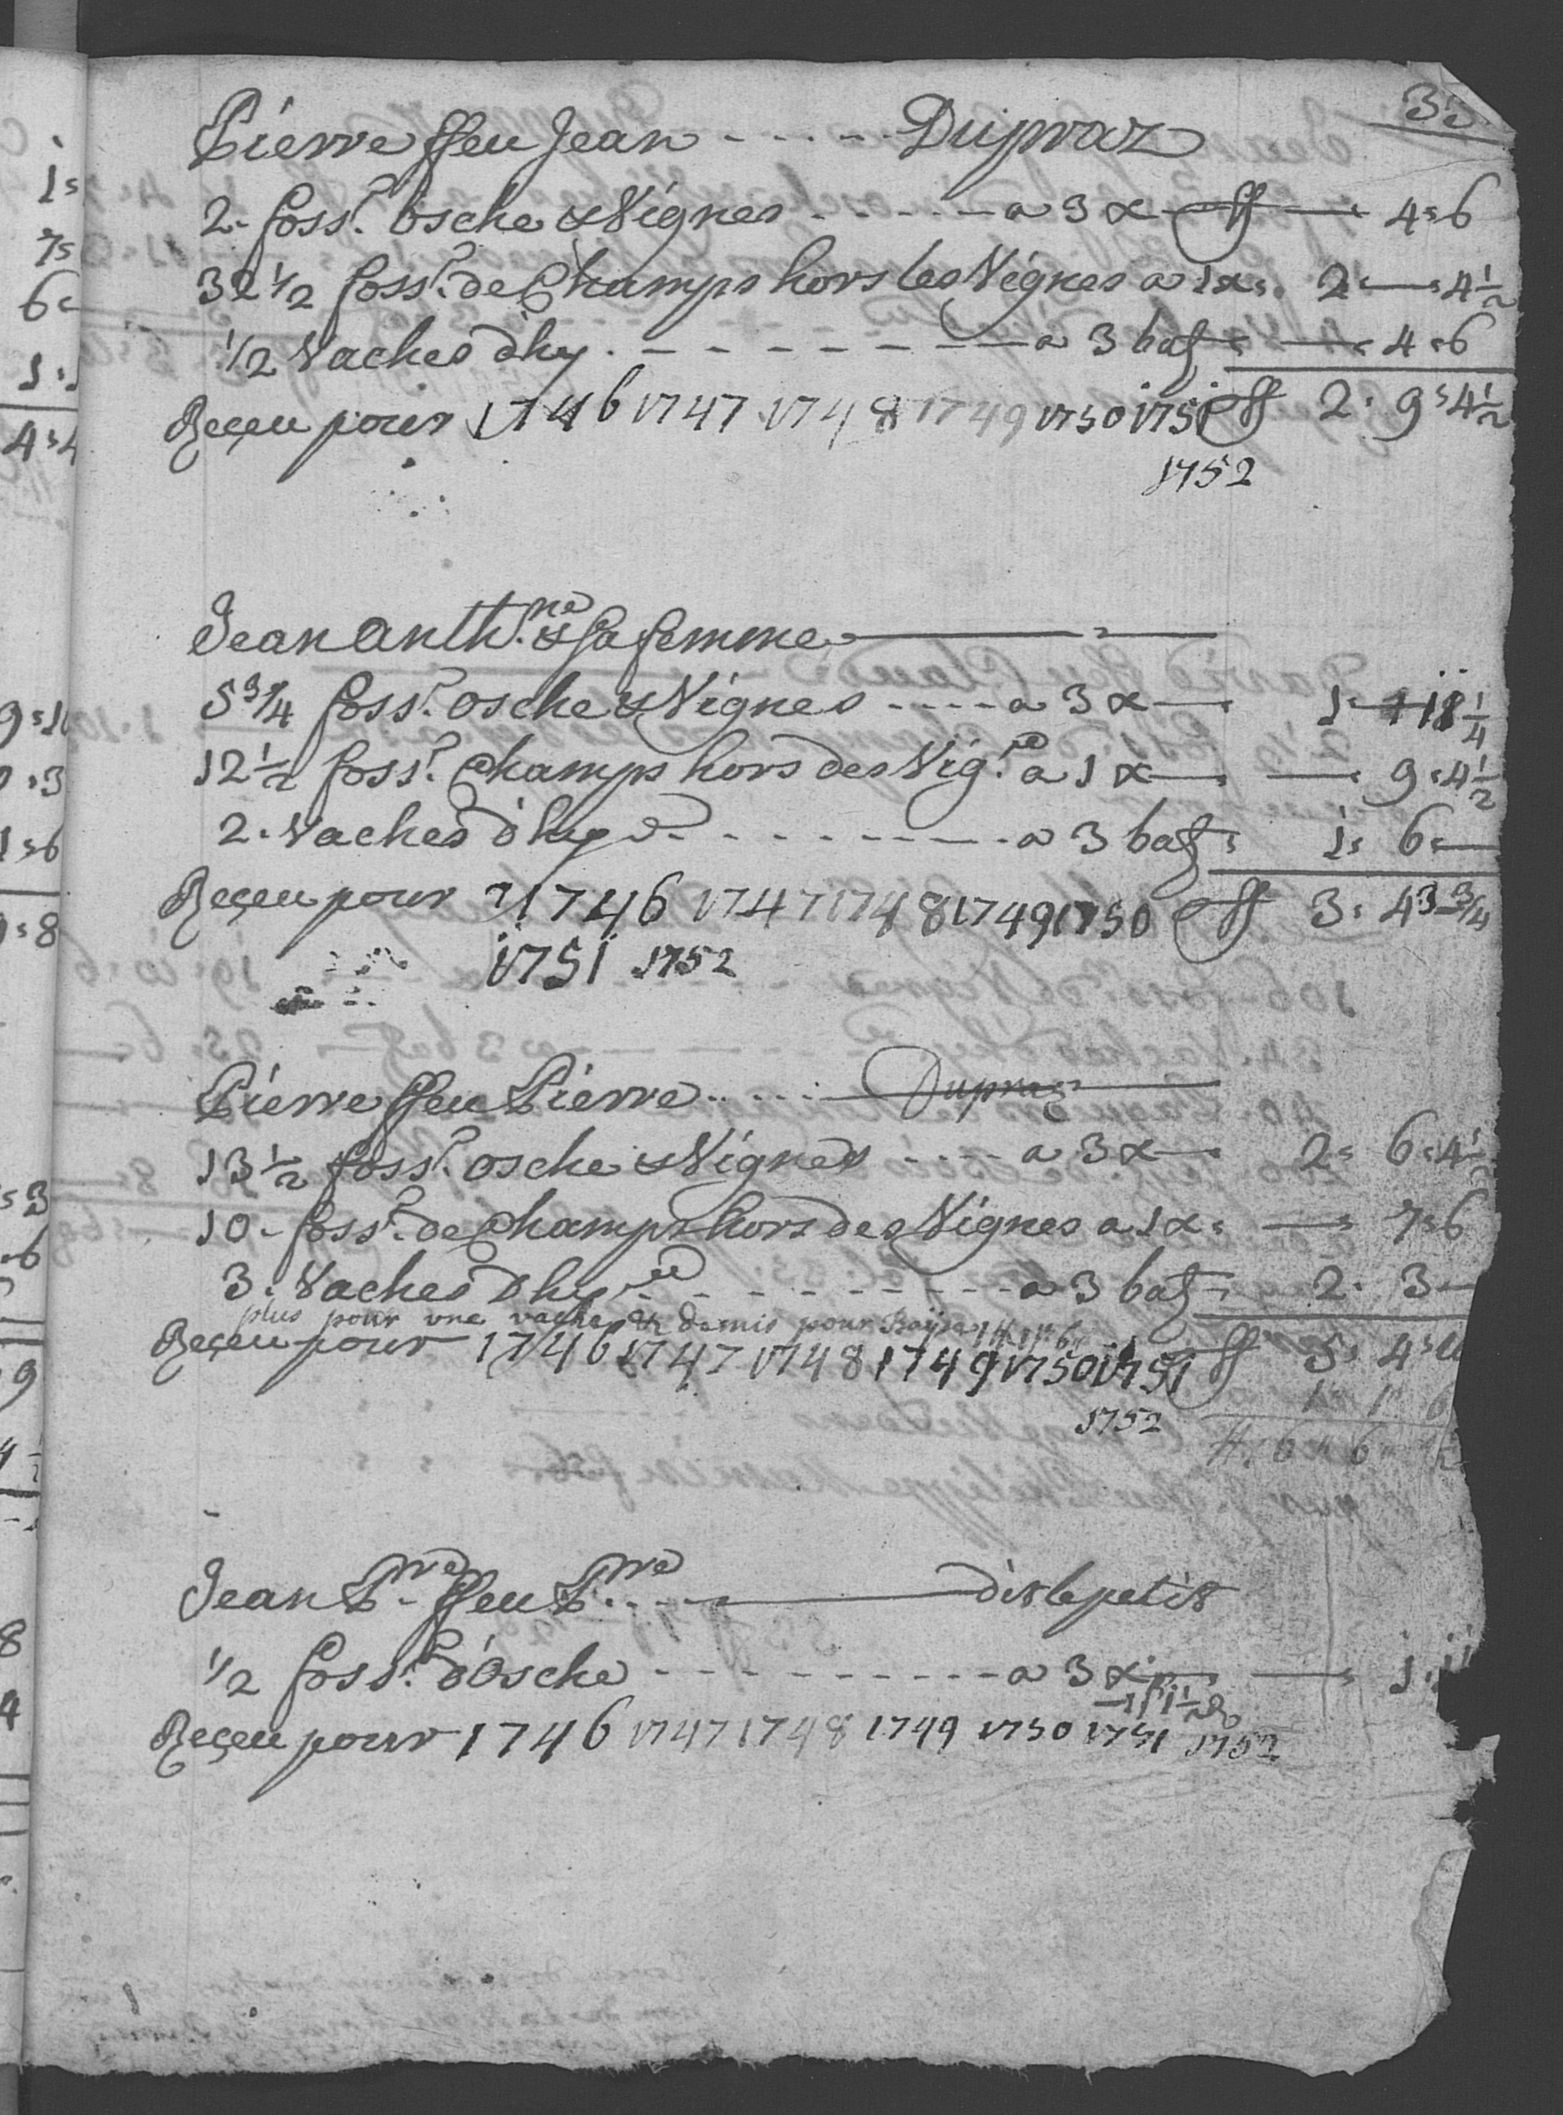 35
Pierre ffeu Jean - - - - - Dupraz
2. foss.r osche & Vignes - - - - - a 3 x ff — 4 = 6
32 1/2 foss.r de Champs hors les Vignes a 1 x = 2 — 4 1/2
1/2 Vaches d'hy. - - - - - - - - a 3 batz — 4 = 6
Reçeu pour 1746 1747 1748 1749 1750 1751 ff 2 = 9 = 4 1/2
1752
Jean Anth.ne & sa femme
5 3/4 foss.r osche & Vignes - - - - a 3 x — 1 = 1 18 1/4
12 1/2 foss.r Champs hors des Vig.es a 1 x — — 9 = 4 1/2
2. Vaches d'hy - - - - - - - - a 3 batz = 1 = 6 = —
Reçeu pour 1746 1747 1748 1749 1750 ff 3 = 4 3 3/4
1751 1752
Pierre ffeu Pierre - - - - Dupraz
13 1/2 foss.r osche & Vignes - - - - a 3 x — 2 = 6 = 4 1/2
10 - foss.r de Champs hors des Vignes a 1 x = — 7 = 6
3. Vaches d'hy - - - - - - - - a 3 batz — 2 = 3 —
plus pour une vache & demis pour
Reçeu pour 1746 1747 1748 1749 1750 1751 ff 5 = 4 =
1 = 1 = 6
1752
ff 6 = 6
Jean P.rre ffeu P.rre - - - - — dit le petit
1/2 foss.r d'osche - - - - - - - - - a 3 x — — 1
Reçeu pour 1746 1747 1748 1749 1750 1751 1752